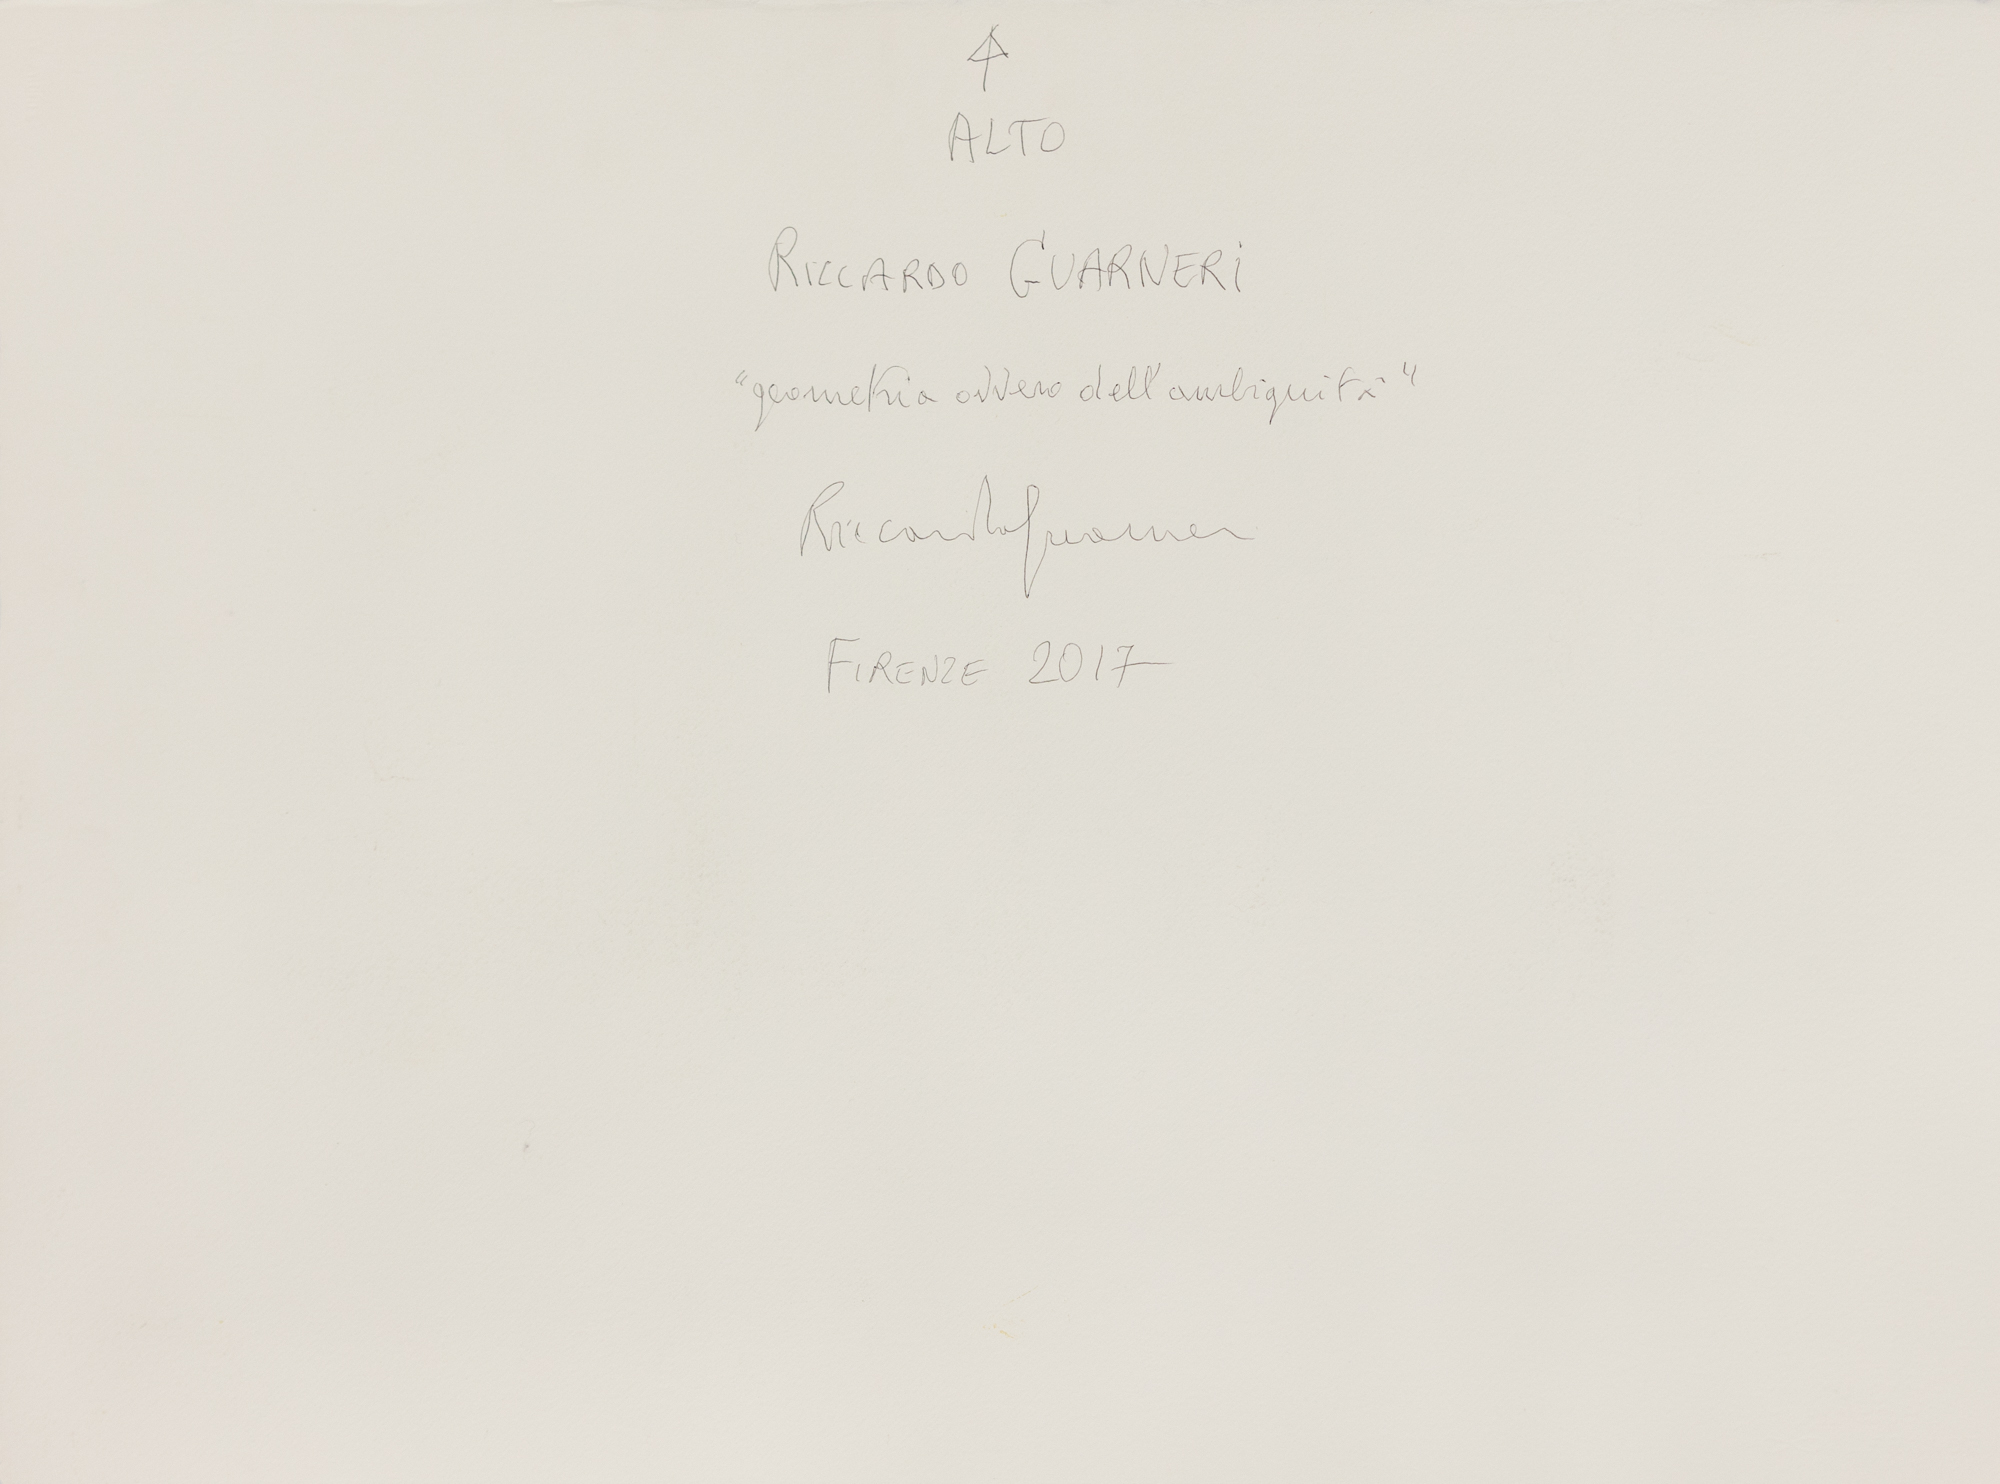 ALTO
RICCARDO GUARNERI
"geometria ovvero dell'ambiguità"
Riccardo Guarneri
FIRENZE 2017